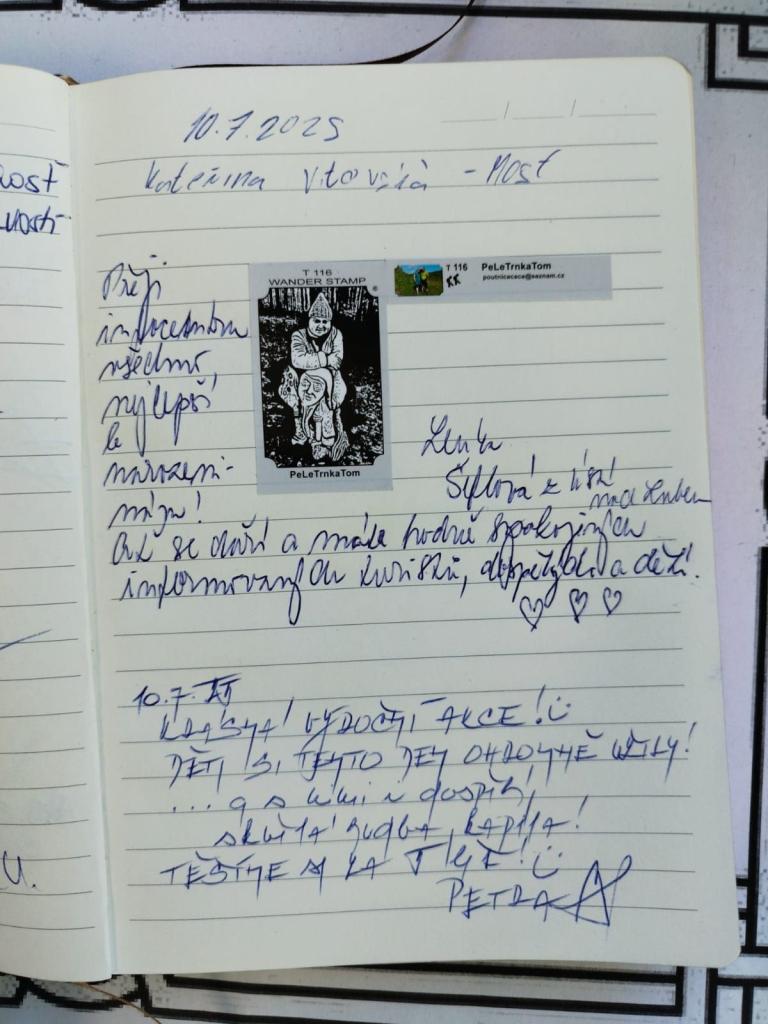 rost
vosti
10.7.2025
Kateřina Vítovská - Most
Přeji
infocentru
všechno,
nejlepší
k
narozeni-
nám!
T 116
WANDER STAMP
®
PeLeTrnkaTom
T 116
PeLeTrnkaTom
poutnicacece@seznam.cz
Lenka
z Ústí
nad Labem
Ať se daří a máte hodně spokojených
informovaných turistů, dospělých a dětí.
10.7.
KRÁSNÁ VÝROČNÍ AKCE!
DĚTI SI TENTO DEN OHROMNĚ UŽILY!
... a s nimi i dospělí!
skvělá hudba, kapela!
TĚŠÍME SE NA
PETRA